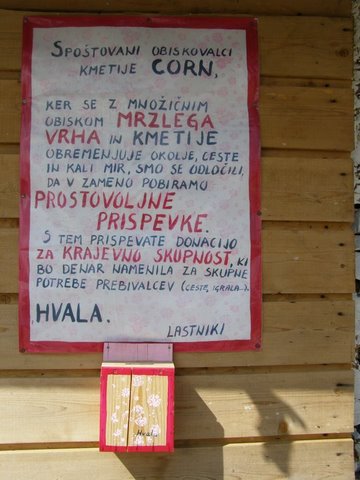 SPOŠTOVANI OBISKOVALCI
KMETIJE CORN,
KER SE Z MNOŽIČNIM
OBISKOM MRZLEGA
VRHA IN KMETIJE
OBREMENJUJE OKOLJE, CESTE
IN KALI MIR, SMO SE ODLOČILI,
DA V ZAMENO POBIRAMO
PROSTOVOLJNE
PRISPEVKE.
S TEM PRISPEVATE DONACIJO
ZA KRAJEVNO SKUPNOST, KI
BO DENAR NAMENILA ZA SKUPNE
POTREBE PREBIVALCEV (CESTE, IGRALA...).
HVALA.
LASTNIKI
Hvala